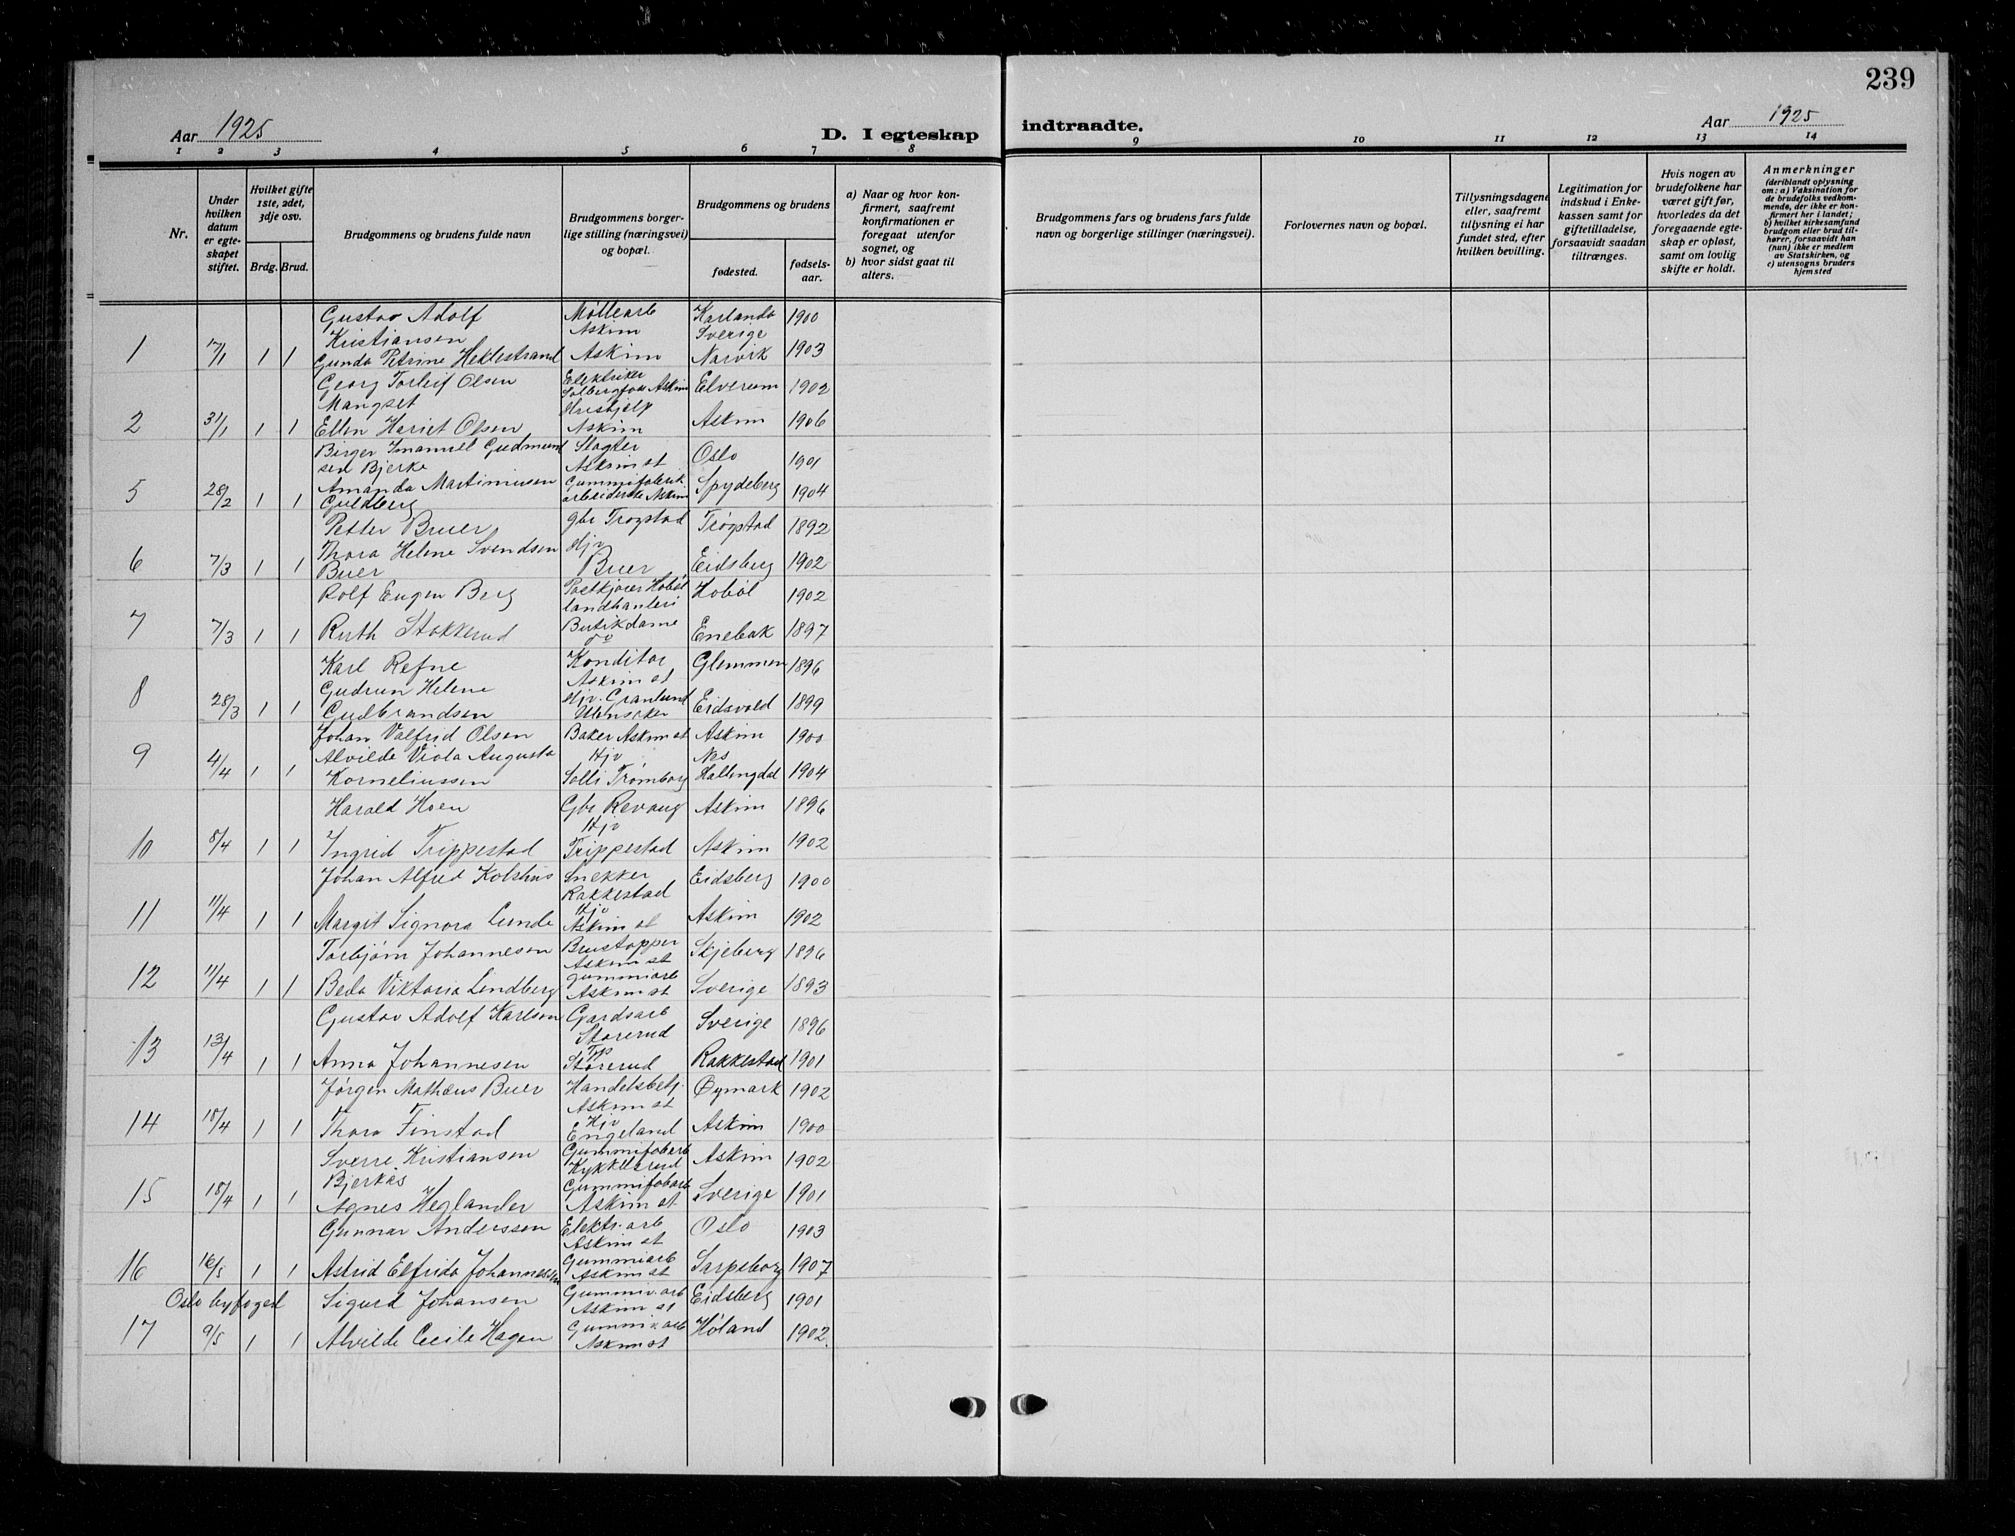 239
Aar 1925
D. I egteskap indtraadte.
Aar 1925
1 2 3 4 5 6 7 8 9 10 11 12 13 14
Nr.
Under hvilken datum er egteskapet stiftet.
Hvilket gifte 1ste, 2det, 3dje osv.
Brdg. Brud.
Brudgommens og brudens fulde navn
Brudgommens borgerlige stilling (næringsvei) og bopæl.
Brudgommens og brudens
fødested.
fødselsaar.
a) Naar og hvor konfirmert, saafremt konfirmationen er foregaat utenfor sognet, og
b) hvor sidst gaat til alters.
Brudgommens fars og brudens fars fulde navn og borgerlige stillinger (næringsvei).
Forlovernes navn og bopæl.
Tillysningsdagene eller, saafremt tillysning ei har fundet sted, efter hvilken bevilling.
Legitimation for indskud i Enkekassen samt for giftetilladelse, forsaavidt saadan tiltrænges.
Hvis nogen av brudefolkene har været gift før, hvorledes da det foregaaende egteskap er opløst, samt om lovlig skifte er holdt.
Anmerkninger
(deriblandt oplysning om: a) Vaksination for de brudefolks vedkommende, der ikke er konfirmert her i landet; b) hvilket kirkesamfund brudgom eller brud tilhører, forsaavidt han (hun) ikke er medlem av Statskirken, og c) utensogns bruders hjemsted
Gustav Adolf Møllearb Karlanda 1900
Kristiansen Askim Sverige
1 17/1 1 1 Gunda Petrine Heklestrand Askim Narvik 1903
Georg Torleif Olsen Elektriker Elverum 1902
Mangset Solbergfoss Askim
2 31/1 1 1 Ellen Hariet Olsen Hushjelp Askim Askim 1906
Birger Imanuel Gudmund Slagter Oslo 1901
sen Bjerke Askim st
5 28/2 1 1 Amanda Martinusen Gummifabrik Spydeberg 1904
Guldberg arbeiderske Askim
Petter Buer gbr Trøgstad Trøgstad 1892
6 7/3 1 1 Thora Helene Svendsen Hjv Eidsberg 1902
Buer Buer
Rolf Eugen Berg Postkjører Hobøl Hobøl 1902
landhanleri
7 7/3 1 1 Ruth Stokkerud Butikdame Enebak 1897
do
Karl Refne Konditor Glemmen 1896
Askim st
8 28/3 1 1 Gudrun Helene Hjv. Granlund Eidsvold 1899
Gulbrandsen Ullensaker
Johan Valfrid Olsen Baker Askim st Askim 1900
9 4/4 1 1 Alvilde Viola Augusta Hjv Nes
Korneliussen Solli Trømborg Hallingdal 1904
Harald Hoen Gbr Revaug Askim 1896
10 8/4 1 1 Ingrid Trippestad Hjv Trippestad Askim 1902
Johan Alfred Kolshus Snekker Eidsberg 1900
Rakkestad
11 11/4 1 1 Margit Signora Lunde Hjv Askim st Askim 1902
Torbjørn Johannesen Skjeberg 1896
Askim st
12 11/4 1 1 Beda Viktoria Lindberg Gummiarb Sverige 1893
Askim st
Gustav Adolf Karlsen Gardsarb Sverige 1896
Storerud
13 13/4 1 1 Anna Johannesen Storerud Rakkestad 1901
Jørgen Mathæus Buer Handelsbetj. Øymark 1902
Askim st
14 18/4 1 1 Thora Finstad Hjv Engeland Askim 1900
Sverre Kristiansen Gummifabarb Askim 1902
Bjerkås Kykkelsrud
15 18/4 1 1 Agnes Heglander Gummifabarb Sverige 1901
Askim st
Gunnar Anderssen Elektr. arb Oslo 1903
Askim st
16 16/5 1 1 Astrid Elfrida Johannessen Gummiarb Sarpsborg 1907
Askim st
Oslo byfoged Sigurd Johansen Gummiv. arb Eidsberg 1901
Askim st
17 9/5 1 1 Alvilde Cecile Hagen Gummiv. arb Høland 1902.
Askim st